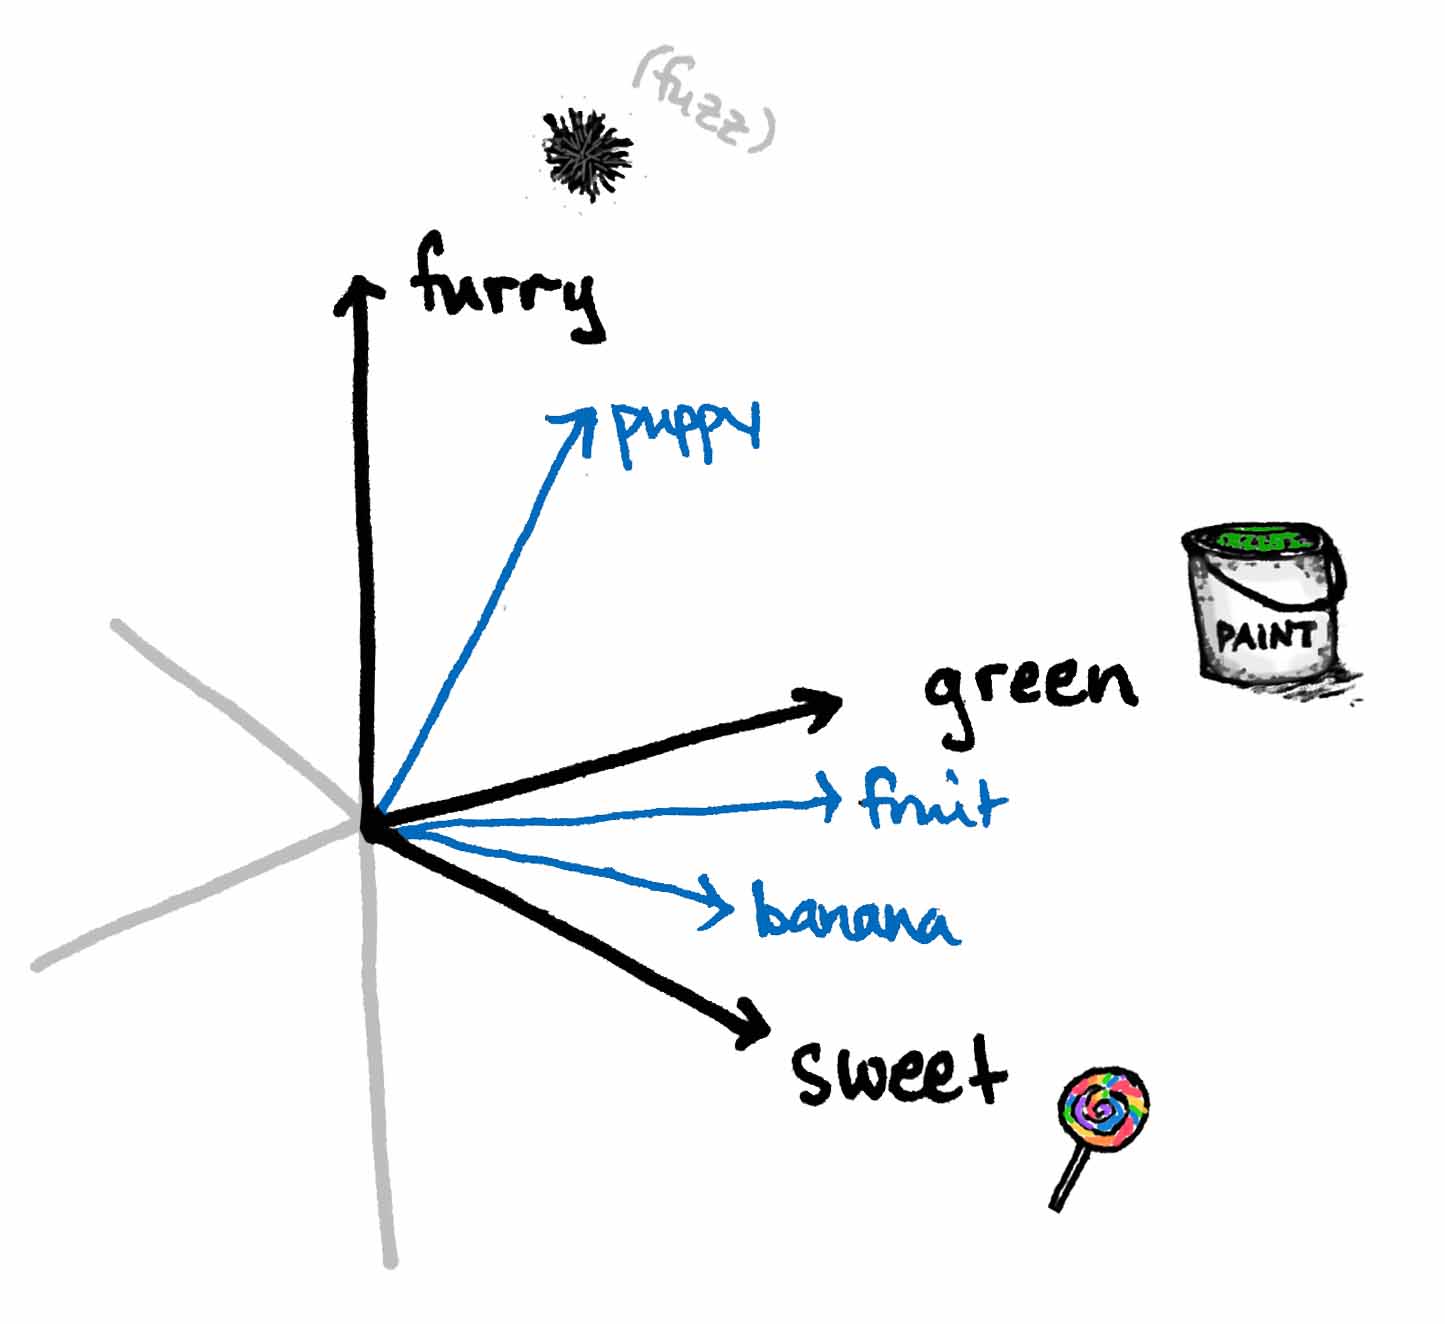 (fuzz)
furry
puppy
PAINT
green
fruit
banana
sweet